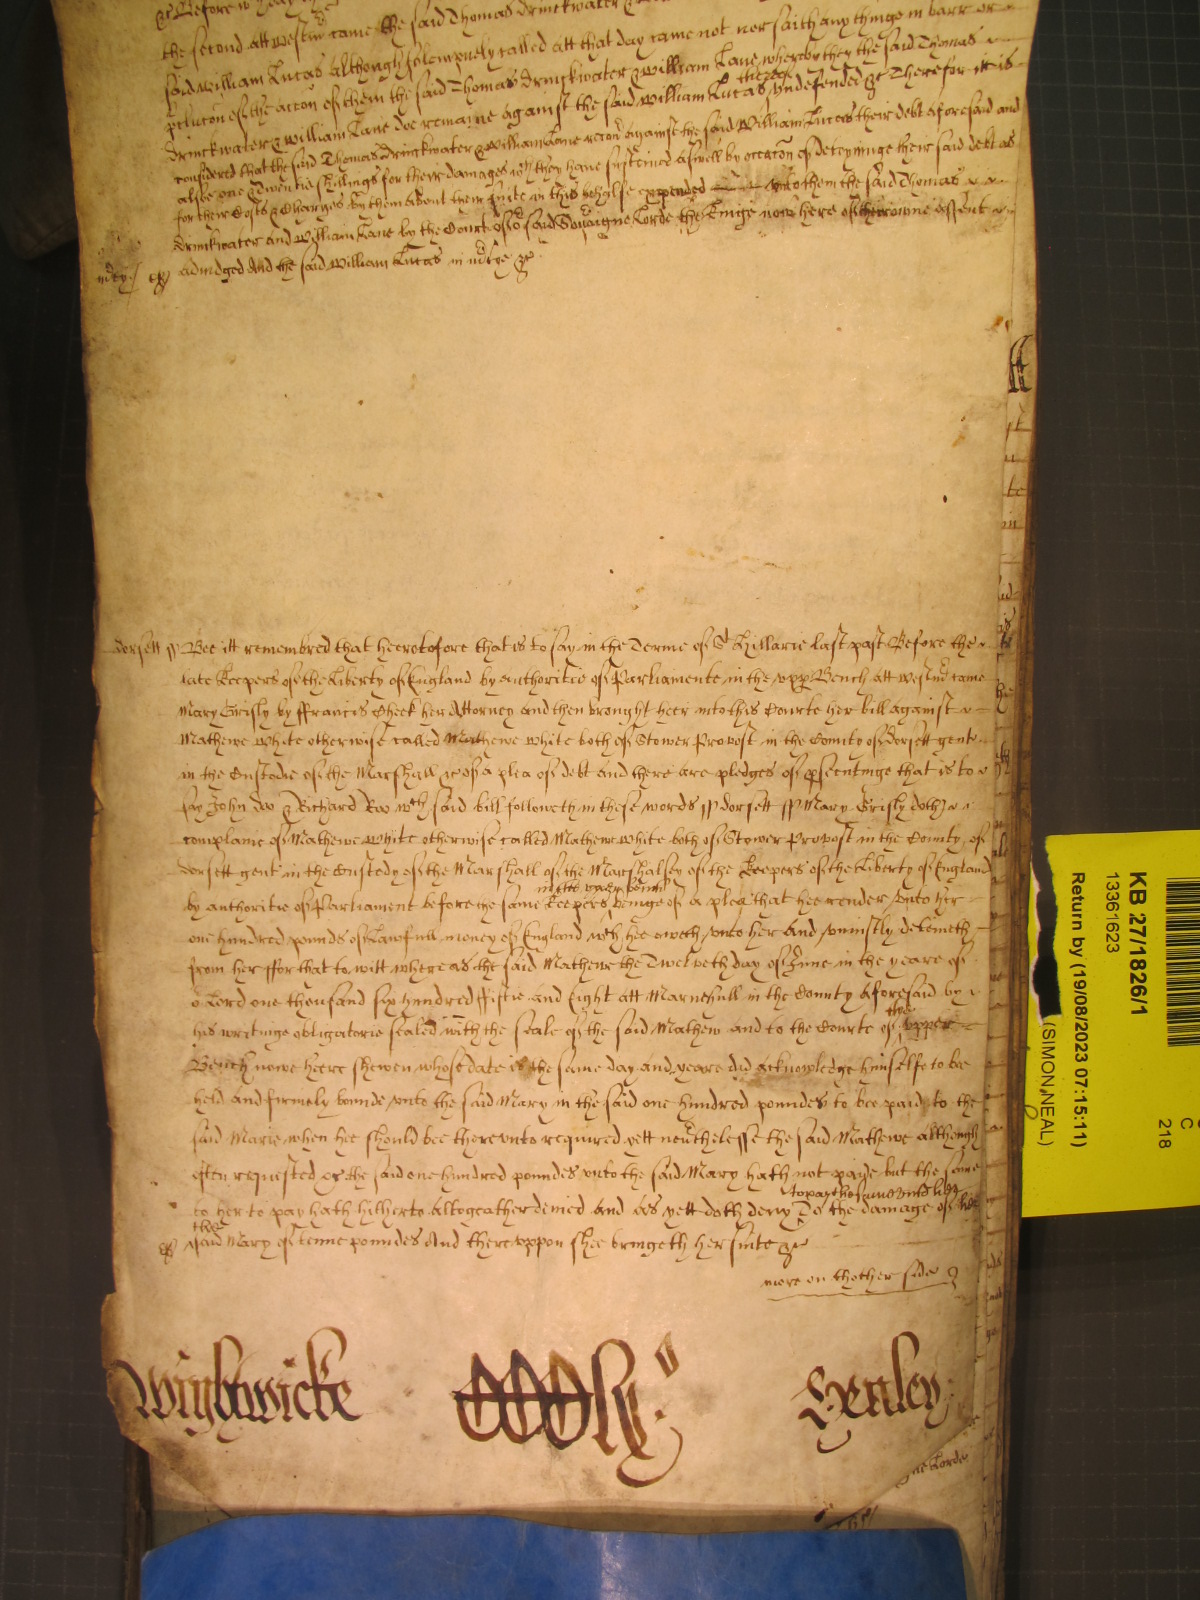 the second att Westm̃ came the said Thomas Drinckwater &
said William Lucas although solempnely called att that day came not nor saith any thinge in barr or
pclucon of the accon of them the said Thomas Drinckwater & William Lane whereby they the said Thomas
Drinckwater & William Lane doe remaine against the said William Lucas therein undefended &c Therefore it is
considered that the said Thomas Drinckwater & William Lane recor̃ against the said William Lucas their debt aforesaid and
alsoe one & Twentie shillings for their damages wch they have susteined aswell by occacon of deteyninge their said debt as
for their Costs & Charges by them about their suite in this behalfe expended unto them the said Thomas
Drinckwater and William Lane by the Court of or said Sovaigne Lorde the Kinge now here of their owne assent
adiudged And the said William Lucas in m̃cye &c
m̃cy
dorsett ss Bee itt remembred that heeretofore that is to say in the Terme of St Hillarie last past Before the
late Keepers of the Liberty of England by authoritie of Parliamente in the upp Bench att Westm̃ came
Mary Grisly by Francis Cheek her Attorney and then brought heer into this Courte her bill against
Mathewe White otherwise called Mathewe White both of Stower Provost in the County of dorsett gent
in the Custodie of the Marshall &c of a plea of debt and there are pledges of psecutinge that is to
say John Do & Richard Roo wch said bill followeth in these words ss dorsett ss Mary Grisly doth
complaine of Mathewe White otherwise called Mathew White both of Stower Provost in the County of
dorsett gent in the Custody of the Marshall of the Marshalsey of the Keepers of the Liberty of England
by authoritie of Parliament before the same Keepers in the upper bench beinge of a plea that hee render unto her
one hundred pounds of Lawfull money of England wch hee oweth unto her And uniustly deteineth
from her ffor that to witt whereas the said Mathew the Twelveth day of June in the yeare of
or Lord one thousand six hundred fiftie and Eight att Marnehull in the County aforesaid by
his writinge obligatorie sealed with the seale of the said Mathew and to the Courte of the upper
Bench nowe heere shewen whose date is the same day and yeare did acknowledge himselfe to be
held and firmely bounde unto the said Mary in the said one hundred poundes to bee paid to the
said Marie when hee should bee thereunto required yett nev̾thelesse the said Mathewe although
often requested &c the said one hundred poundes unto the said Mary hath not paide but the same
to her to pay hath hitherto altogeather denied And as yett doth deny To the damage of her
the said Mary of tenne poundes And thereuppon shee bringeth her suite &c
more on thother side
Wightwicke
Henley
ne Lorde
KB 27/1826/1
13361623
Return by (19/08/2023 07:15:11)
(SIMON NEAL)
C
218